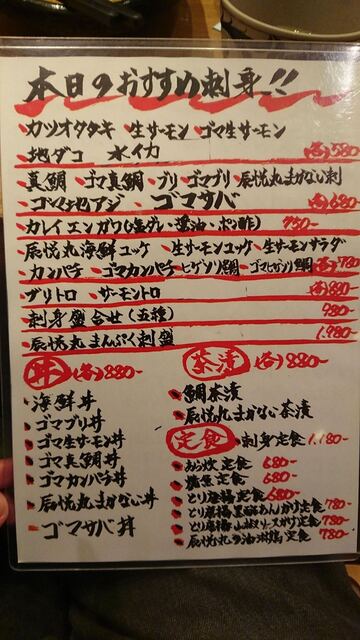 本日のおすすめ刺身!!
カツオタタキ 生サーモン ゴマ生サーモン
地ダコ 水イカ 各580-
真鯛 ゴマ真鯛 ブリ ゴマブリ 辰悦丸まかない刺
アジ ゴマサバ 各680-
カレイエンガワ(塩ダレ・醤油・ポン酢) 750-
辰悦丸海鮮ユッケ 生サーモンユッケ 生サーモンサラダ
カンパチ ゴマカンパチ ヒゲソリ鯛 ゴマヒゲソリ鯛 各780-
ブリトロ サーモントロ 各880-
刺身盛合せ(五種) 980-
辰悦丸まんぷく刺盛 1.980-
丼 (各)880-
海鮮丼
ゴマブリ丼
ゴマ生サーモン丼
ゴマ真鯛丼
ゴマカンパチ丼
辰悦丸まかない丼
ゴマサバ丼
茶漬 (各)880-
鯛茶漬
辰悦丸まかない茶漬
定食 刺身定食 1.180-
定食 680-
塩サバ定食 680-
とり唐揚定食 680-
とり唐揚黒酢あんかけ定食 780-
とり唐揚ソースがけ定食 780-
辰悦丸ラー油 定食 780-